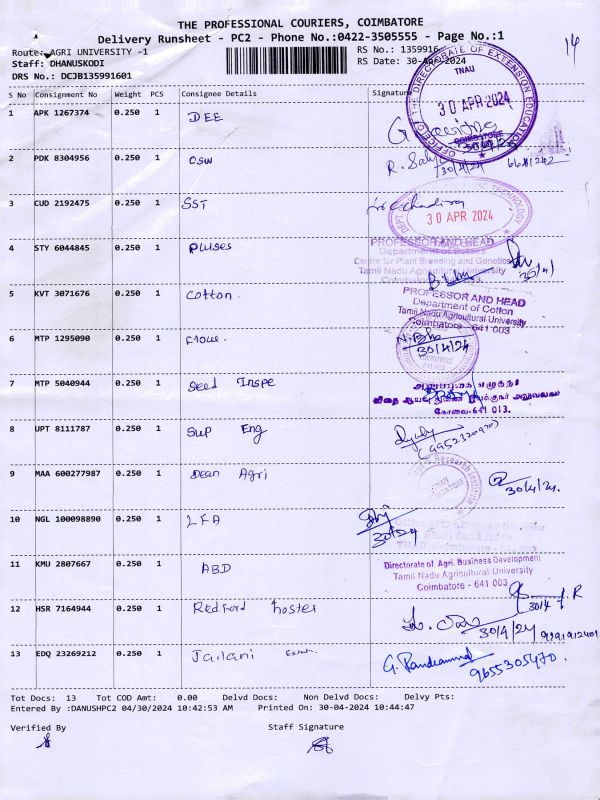 THE PROFESSIONAL COURIERS, COIMBATORE
Delivery Runsheet - PC2 - Phone No.:0422-3505555 - Page No.:1
14
Route: AGRI UNIVERSITY -1
RS No.: 1359916
Staff: DHANUSKODI
RS Date: 30-Apr-2024
DRS No.: DCJB135991601
OFFICE OF THE DIRECTORATE OF EXTENSION EDUCATION
TNAU
30 APR 2024
COIMBATORE
S No Consignment No Weight PCS Consignee Details Signature
1 APK 1267374 0.250 1 DEE
2 PDK 8304956 0.250 1 OSW
30/4/24
3 CUD 2192475 0.250 1 SST
30 APR 2024
4 STY 6044845 0.250 1 pulses
PROFESSOR AND HEAD
Department of Pulses
Centre for Plant Breeding and Genetics
Tamil Nadu Agricultural University
5 KVT 3071676 0.250 1 Cotton.
PROFESSOR AND HEAD
Department of Cotton
Tamil Nadu Agricultural University
Coimbatore - 641 003
6 MTP 1295090 0.250 1
30/4/24
7 MTP 5040944 0.250 1 Seed Inspe
கோவை-641 013.
8 UPT 8111787 0.250 1 Sup Eng
9 MAA 600277987 0.250 1 Dean Agri
30/4/24.
10 NGL 100098890 0.250 1 LFA
11 KMU 2807667 0.250 1 ABD
Directorate of Agri. Business Development
Tamil Nadu Agricultural University
Coimbatore - 641 003
12 HSR 7164944 0.250 1
30/4/24
13 EDQ 23269212 0.250 1 Jailani
9655305470.
Tot Docs: 13 Tot COD Amt: 0.00 Delvd Docs: Non Delvd Docs: Delvy Pts:
Entered By :DANUSHPC2 04/30/2024 10:42:53 AM Printed On: 30-04-2024 10:44:47
Verified By Staff Signature